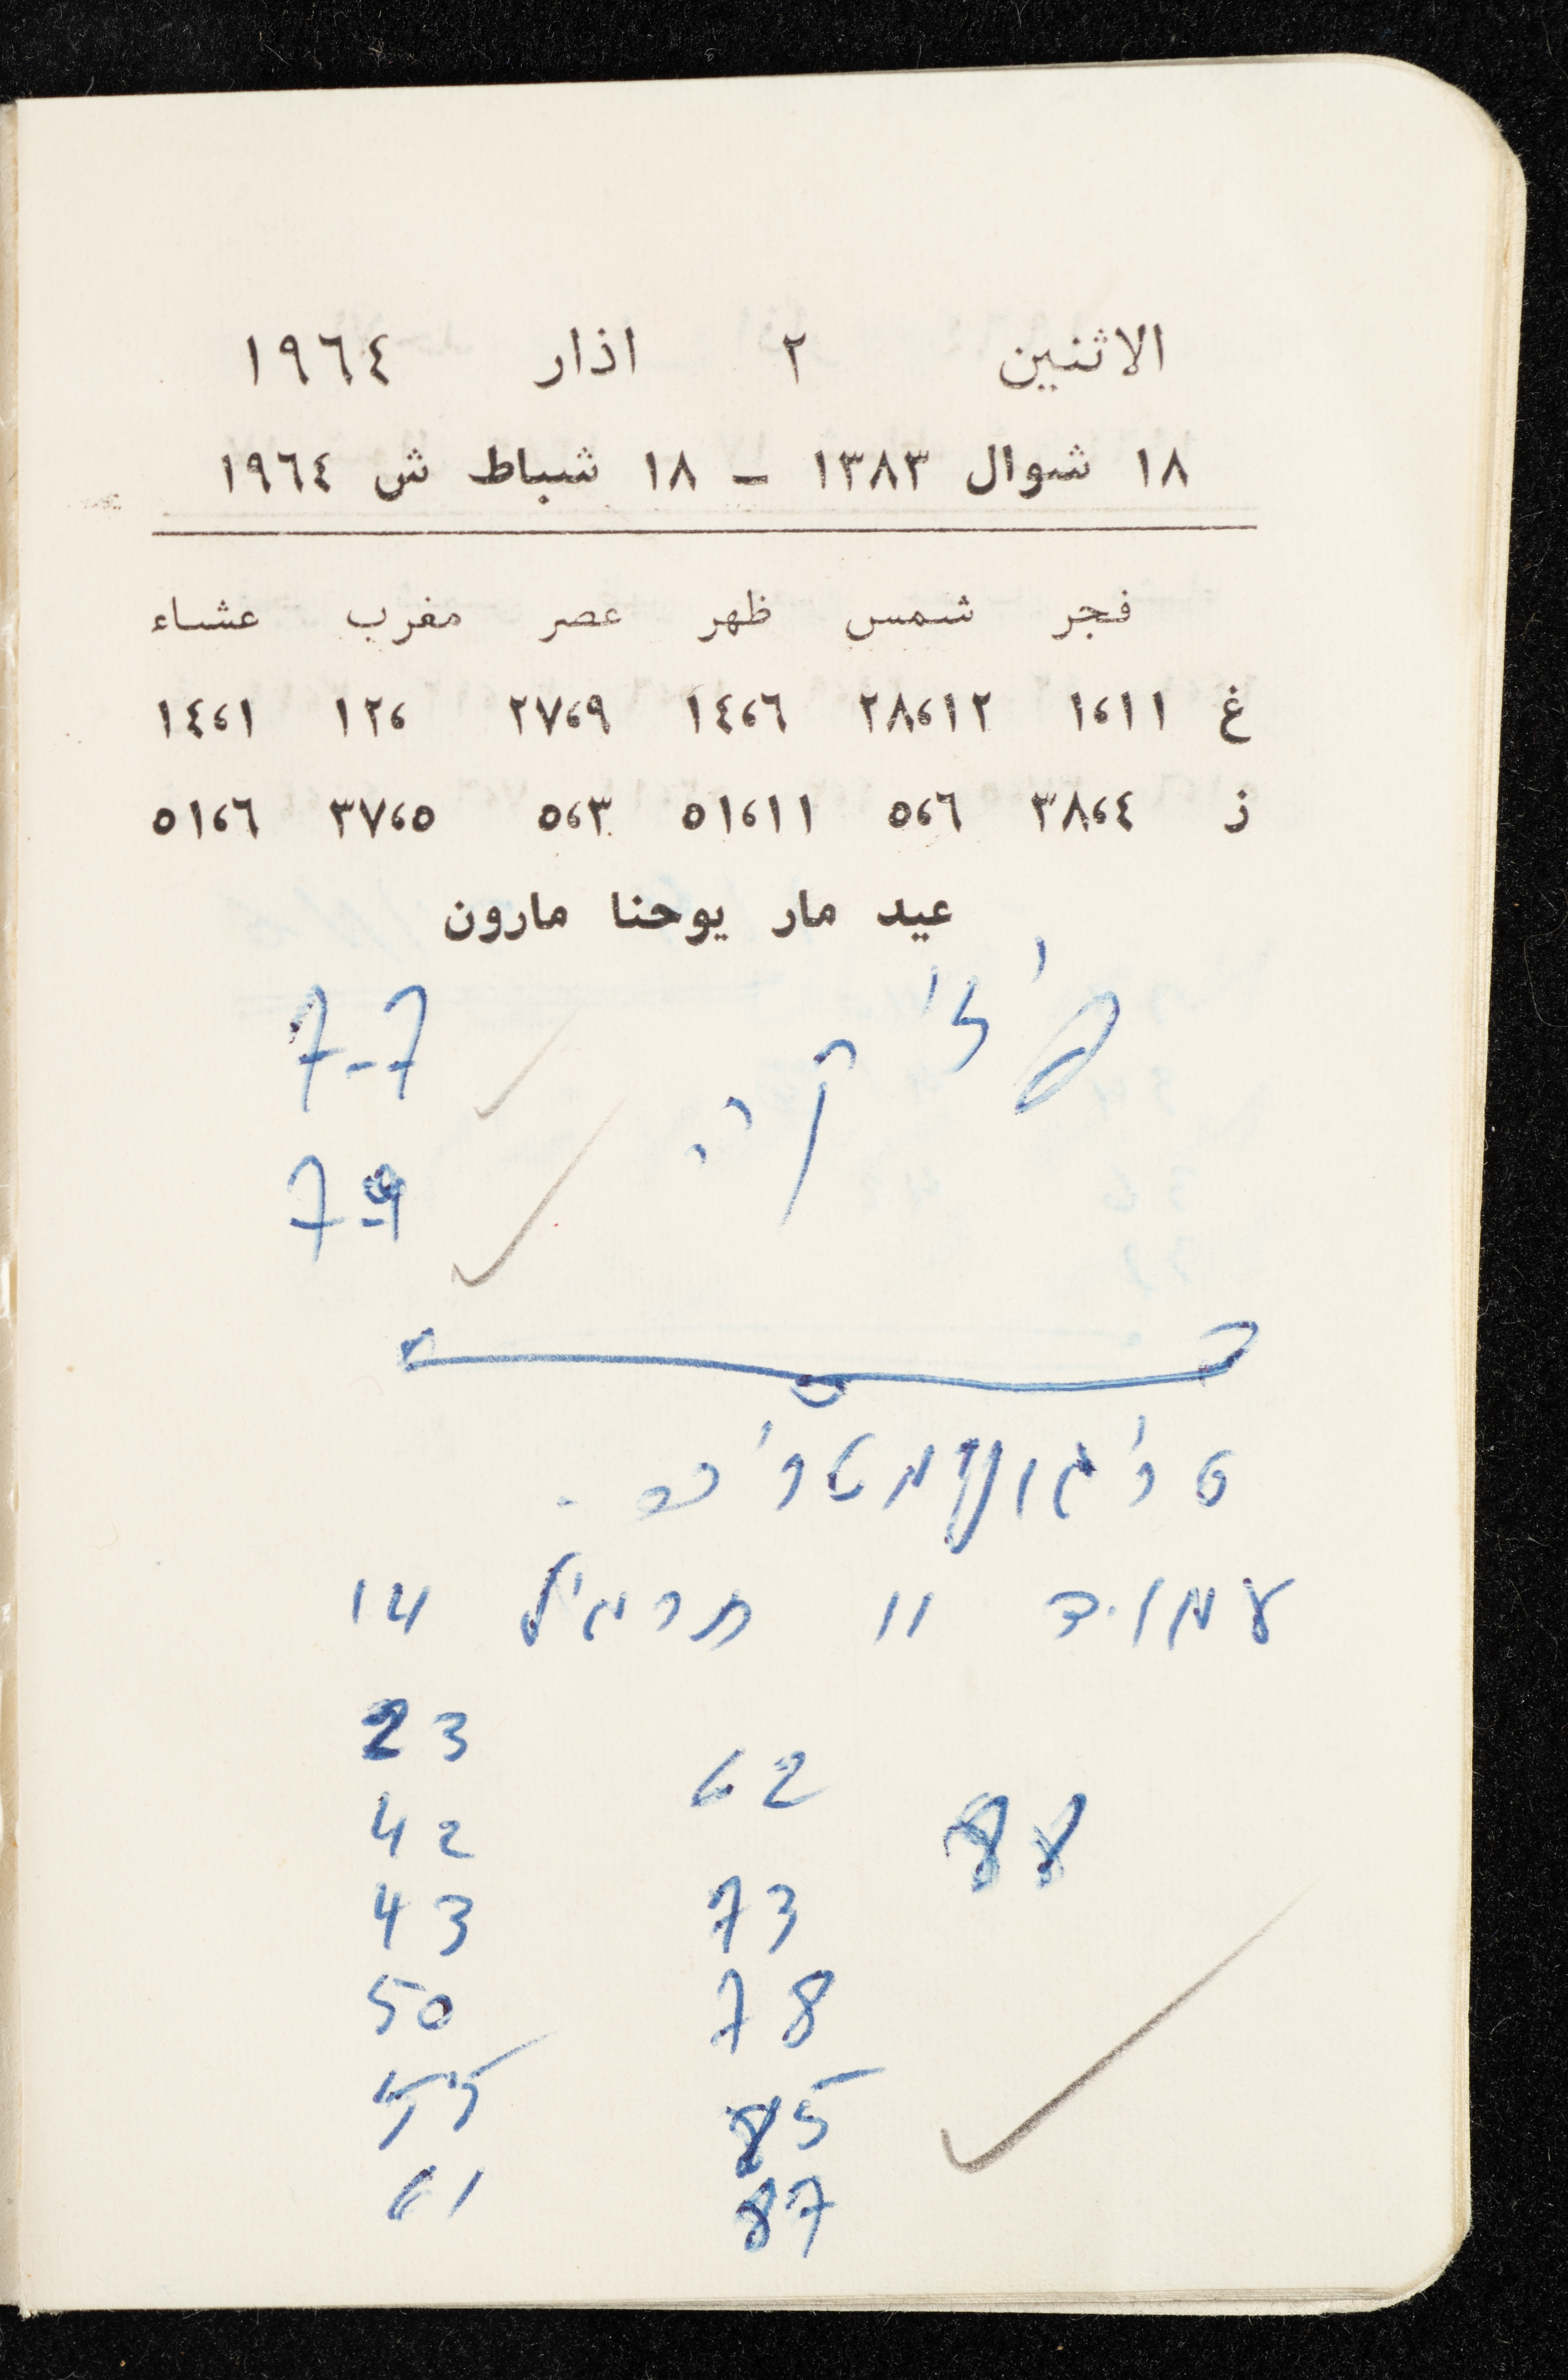 الاثنين ٢ اذار ١٩٦٤
١٨ شوال ١٣٨٣ – ١٨ شباط ش ١٩٦٤
فجر شمس ظهر عصر مغرب عشاء
غ ١،١١ ٢٨،١٢ ١٤،٦ ٢٧،٩ ١٢، ١٤،١
ز ٣٨،٤ ٥،٦ ٥١،١١ ٥،٣ ٣٧،٥ ٥١،٦
عيد مار يوحنا مارون
פיזי
קה 7-7
7-9
טריגונומטריה.
עמוד 11 תרגיל 14
23
42
43
50
55
61
62
73
78
85
87
88